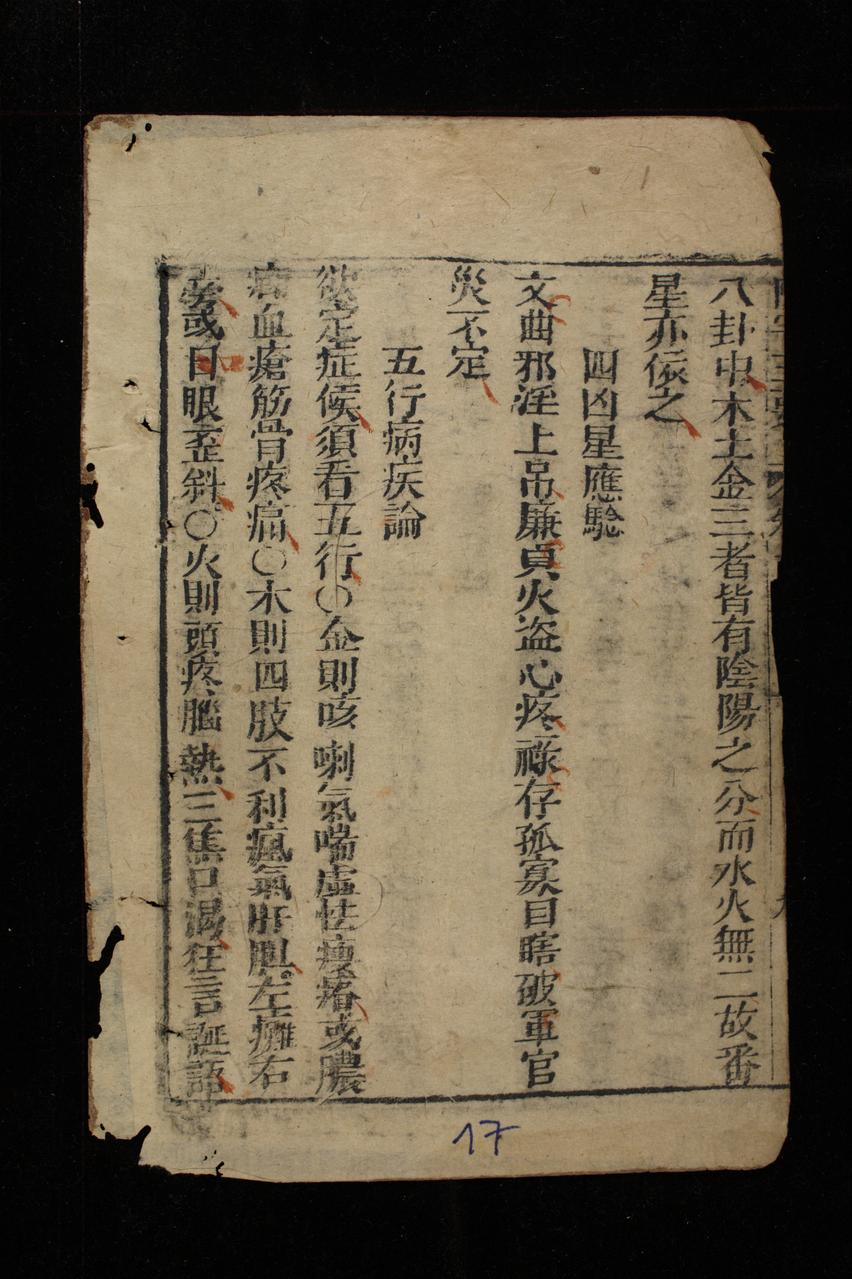 八卦中木土金三者皆有陰陽之分而水火無二故番
星亦依之
四凶星應驗
文曲邪淫上吊廉貞火盜心疼祿存孤寡目瞎破軍官
災不定
五行病疾論
欲定症候須看五行〇金則咳喇氣喘虛怯瘦瘠或膿
血瘡筋骨疼痛〇木則四肢不利瘋氣肝胆左癱右
或口眼歪斜〇火則頭疼腦熱三焦口渴狂言誕語
17